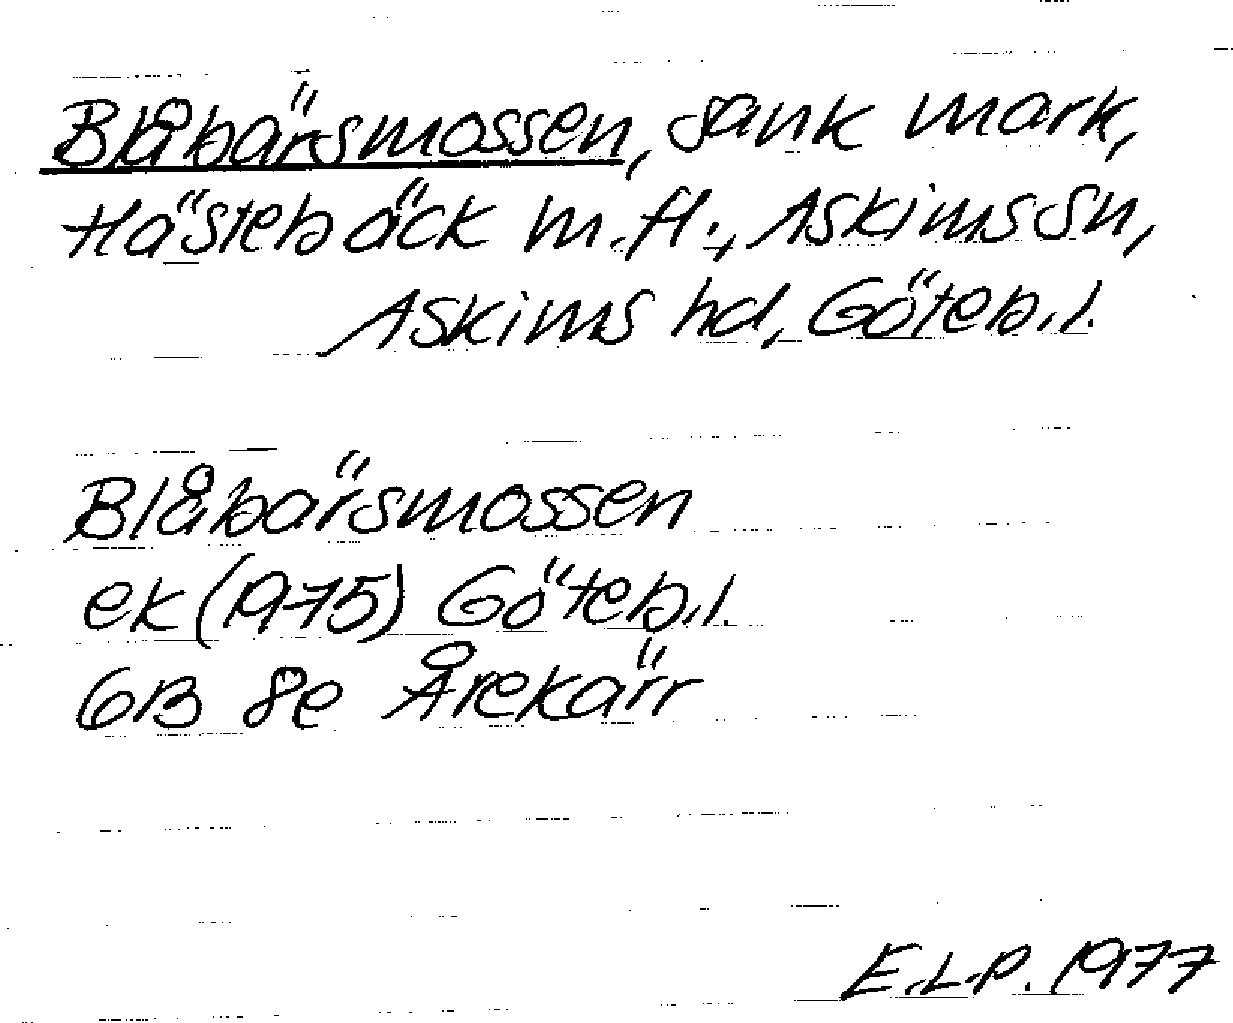 Blåbärsmossen, sank mark,
Hästebäck m.fl., Askims sn,
Askims hd, Göteb.l.
Blåbärsmossen
ek (1975) Göteb.l.
6B 8e Årekärr
E.L.P. 1977